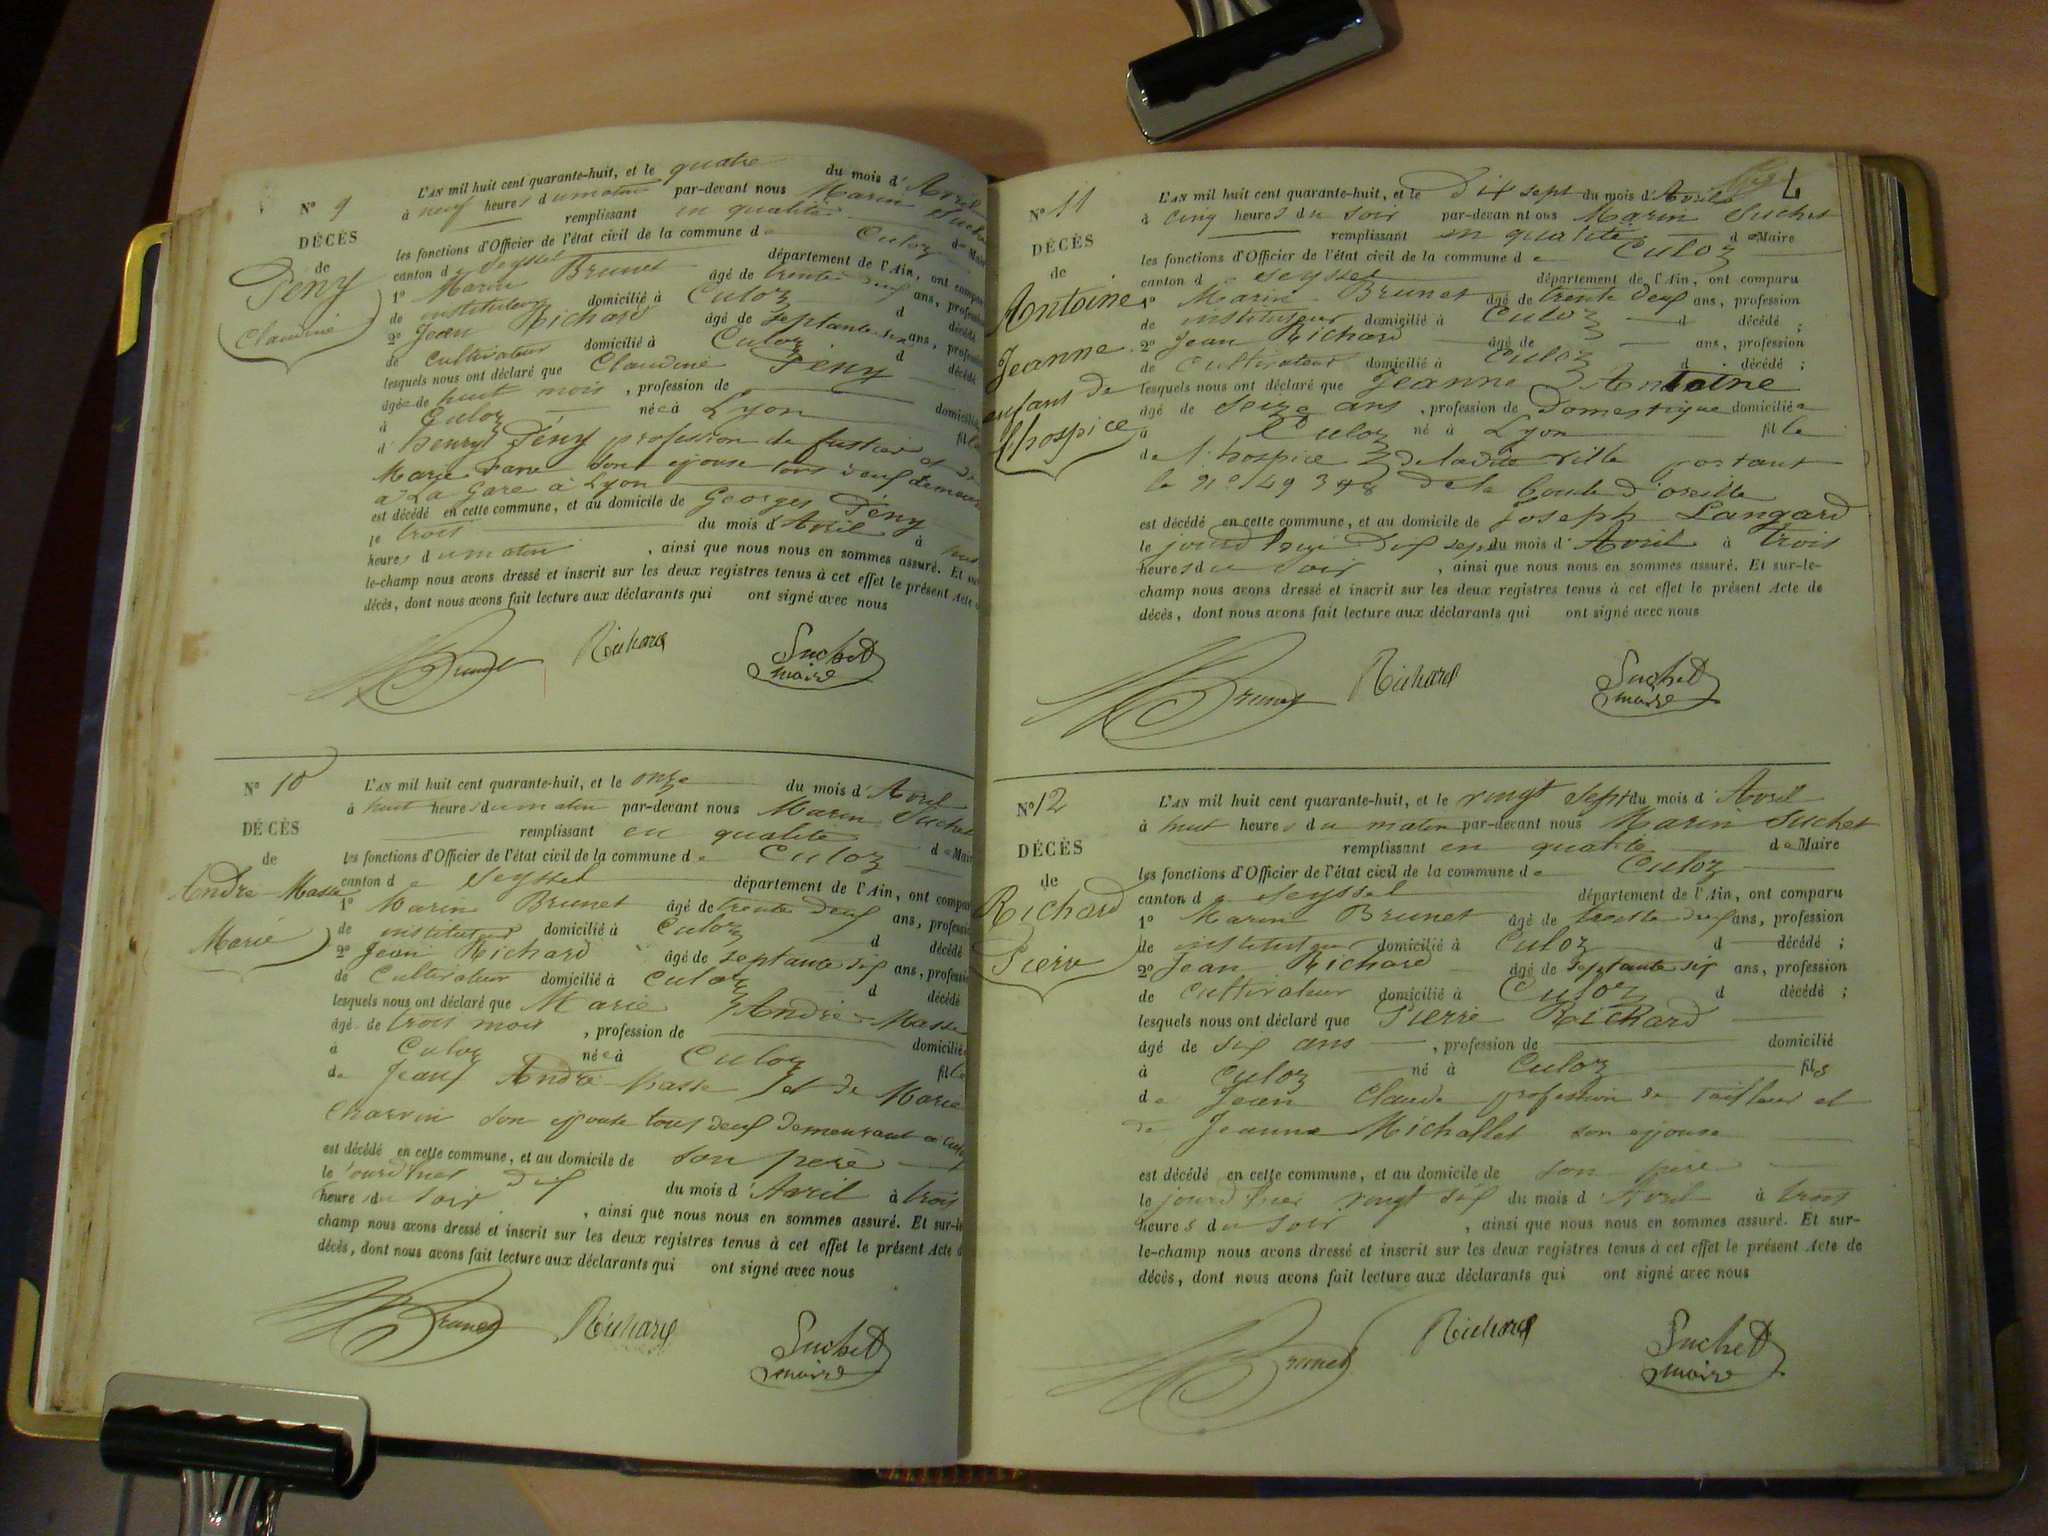 Nº 9
DÉCÈS
de
Pény
Claudine
L'AN mil huit cent quarante-huit, et le quatre du mois d'Avril
à neuf heures du matin par-devant nous Marin Suchet
remplissant en qualité de Maire
les fonctions d'Officier de l'état civil de la commune de Culoz
canton d Seyssel département de l'Ain, ont comparu
1º Marin Brunet âgé de trente deux ans, profession
de instituteur domicilié à Culoz d décédé
2º Jean Richard âgé de septante six ans, profession
de Cultivateur domicilié à Culoz d décédé
lesquels nous ont déclaré que Claudine Pény
âgée de huit mois, profession de domiciliée
à Culoz née à Lyon fille
d'henry Pény profession de fustier et de
Marie son épouse tous deux demeurant
à La Gare à Lyon
est décédé en cette commune, et au domicile de Georges Pény
le trois du mois d'Avril à huit
heures du matin, ainsi que nous nous en sommes assuré. Et sur
le-champ nous avons dressé et inscrit sur les deux registres tenus à cet effet le présent Acte de
décès, dont nous avons fait lecture aux déclarants qui ont signé avec nous
Brunet Richard Suchet
maire
Nº 10
DÉCÈS
de
André Masse
Marie
L'AN mil huit cent quarante-huit, et le onze du mois d'Avril
à huit heures du matin par-devant nous Marin Suchet
remplissant en qualité de Maire
les fonctions d'Officier de l'état civil de la commune de Culoz
canton de Seyssel département de l'Ain, ont comparu
1º Marin Brunet âgé de trente deux ans, profession
de instituteur domicilié à Culoz d décédé
2º Jean Richard âgé de septante six ans, profession
de Cultivateur domicilié à Culoz d décédé
lesquels nous ont déclaré que Marie André Masse
âgé de trois mois, profession de domiciliée
à Culoz née à Culoz fille
de Jean André Masse et de Marie
Charvin son épouse tous deux demeurant à Culoz
est décédé en cette commune, et au domicile de son père
le jourd'hier dix du mois d'Avril à trois
heures du soir, ainsi que nous nous en sommes assuré. Et sur-le
champ nous avons dressé et inscrit sur les deux registres tenus à cet effet le présent Acte de
décès, dont nous avons fait lecture aux déclarants qui ont signé avec nous
Brunet Richard Suchet
maire
Nº 11
DÉCÈS
de
Antoine
Jeanne
enfant de
l'hospice
L'AN mil huit cent quarante-huit, et le Dix sept du mois d'Avril
à cinq heures du soir par-devan nt ous Marin Suchet
remplissant en qualité de Maire
les fonctions d'Officier de l'état civil de la commune de Culoz
canton d Seyssel département de l'Ain, ont comparu
1º Marin Brunet âgé de trente deux ans, profession
de instituteur domicilié à Culoz d décédé ;
2º Jean Richard âgé de ans, profession
de Cultivateur domicilié à Culoz d décédé ;
lesquels nous ont déclaré que Jeanne Antoine
âgé de Seize ans, profession de Domestique domiciliée
à Culoz né à Lyon fille
de l'hospice de ladite ville portant
le nº 49 348 de la boucle d'oreille
est décédé en cette commune, et au domicile de joseph Langard
le jourd'hui Dix sept du mois d'Avril à trois
heures du soir, ainsi que nous nous en sommes assuré. Et sur-le-
champ nous avons dressé et inscrit sur les deux registres tenus à cet effet le présent Acte de
décès, dont nous avons fait lecture aux déclarants qui ont signé avec nous
Brunet Richard Suchet
maire
Nº 12
DÉCÈS
de
Richard
Pierre
L'AN mil huit cent quarante-huit, et le vingt sept du mois d'Avril
à huit heures du matin par-devant nous Marin Suchet
remplissant en qualité de Maire
les fonctions d'Officier de l'état civil de la commune de Culoz
canton d Seyssel département de l'Ain, ont comparu
1º Marin Brunet âgé de trente deux ans, profession
de instituteur domicilié à Culoz d décédé ;
2º Jean Richard âgé de septante six ans, profession
de Cultivateur domicilié à Culoz d décédé ;
lesquels nous ont déclaré que Pierre Richard
âgé de six ans, profession de domicilié
à Culoz né à Culoz fils
de Jean Claude profession de Tailleur et
de Jeanne Michallet son épouse
est décédé en cette commune, et au domicile de son père
le jourd'hier vingt six du mois d'Avril à trois
heures du soir, ainsi que nous nous en sommes assuré. Et sur-
le-champ nous avons dressé et inscrit sur les deux registres tenus à cet effet le présent Acte de
décès, dont nous avons fait lecture aux déclarants qui ont signé avec nous
Brunet Richard Suchet
maire